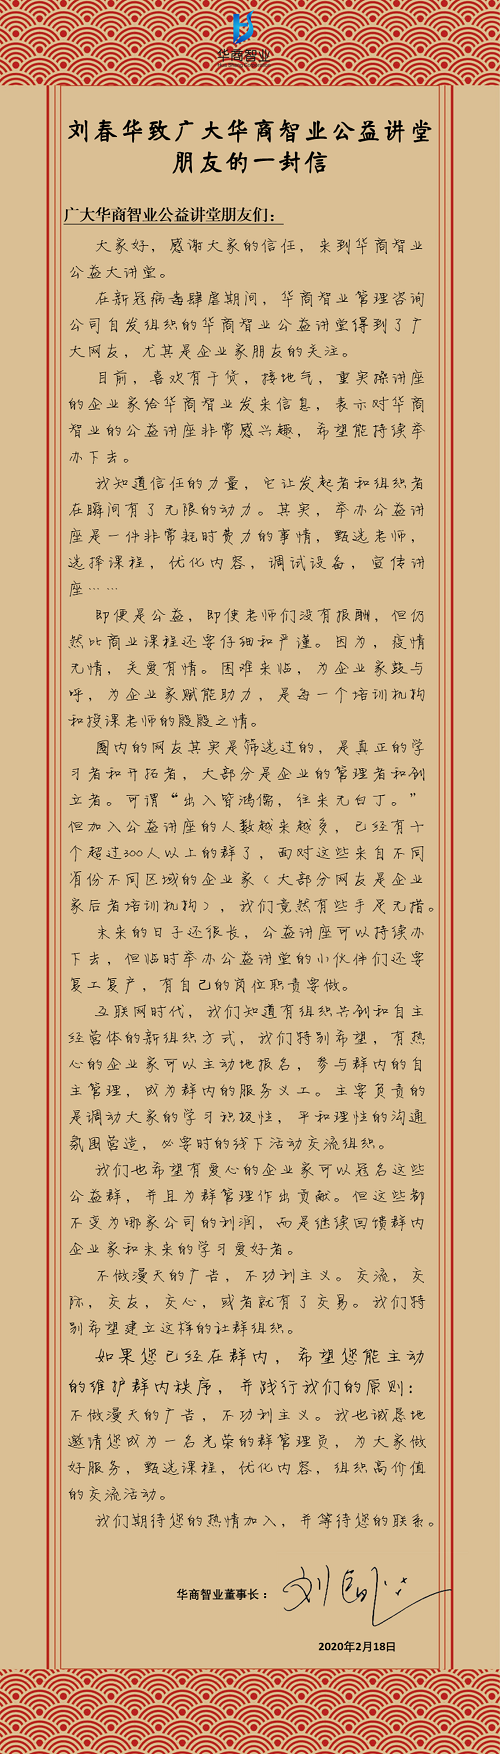 华商智业
刘春华致广大华商智业公益讲堂
朋友的一封信
广大华商智业公益讲堂朋友们：
大家好，感谢大家的信任，来到华商智业
公益大讲堂。
在新冠病毒肆虐期间，华商智业管理咨询
公司自发组织的华商智业公益讲堂得到了广
大网友，尤其是企业家朋友的关注。
目前，喜欢有干货，接地气，重实操讲座
的企业家给华商智业发来信息，表示对华商
智业的公益讲座非常感兴趣，希望能持续举
办下去。
我知道信任的力量，它让发起者和组织者
在瞬间有了无限的动力。其实，举办公益讲
座是一件非常耗时费力的事情，甄选老师，
选择课程，优化内容，调试设备，宣传讲
座……
即便是公益，即使老师们没有报酬，但仍
然比商业课程还要仔细和严谨。因为，疫情
无情，关爱有情。困难来临，为企业家鼓与
呼，为企业家赋能助力，是每一个培训机构
和授课老师的殷殷之情。
圈内的网友其实是筛选过的，是真正的学
习者和开拓者，大部分是企业的管理者和创
立者。可谓“出入皆鸿儒，往来无白丁。”
但加入公益讲座的人数越来越多，已经有十
个超过300人以上的群了，面对这些来自不同
省份不同区域的企业家（大部分网友是企业
家后者培训机构），我们竟然有些手足无措。
未来的日子还很长，公益讲座可以持续办
下去，但临时举办公益讲堂的小伙伴们还要
复工复产，有自己的岗位职责要做。
互联网时代，我们知道有组织共创和自主
经营体的新组织方式，我们特别希望，有热
心的企业家可以主动地报名，参与群内的自
主管理，成为群内的服务义工。主要负责的
是调动大家的学习积极性，平和理性的沟通
氛围营造，必要时的线下活动交流组织。
我们也希望有爱心的企业家可以冠名这些
公益群，并且为群管理作出贡献。但这些都
不变为哪家公司的利润，而是继续回馈群内
企业家和未来的学习爱好者。
不做漫天的广告，不功利主义。交流，交
际，交友，交心，或者就有了交易。我们特
别希望建立这样的社群组织。
如果您已经在群内，希望您能主动
的维护群内秩序，并践行我们的原则：
不做漫天的广告，不功利主义。我也诚恳地
邀请您成为一名光荣的群管理员，为大家做
好服务，甄选课程，优化内容，组织高价值
的交流活动。
我们期待您的热情加入，并等待您的联系。
华商智业董事长：
2020年2月18日